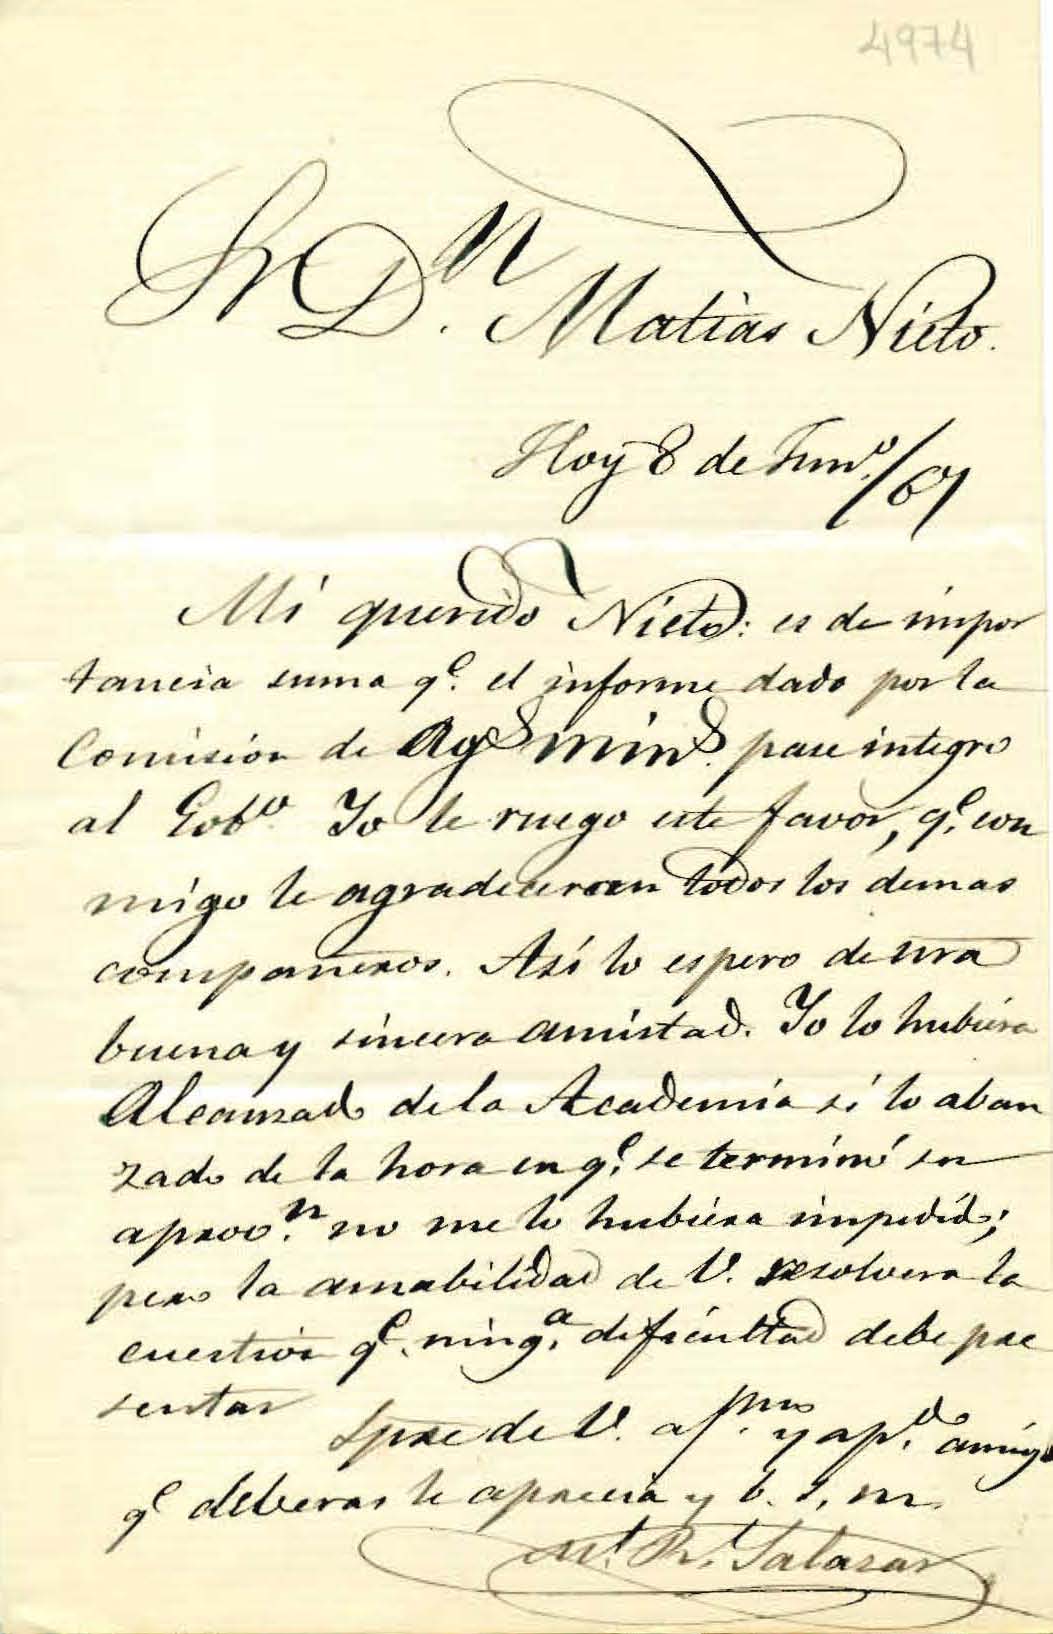 4974
Sr D.n Matias Nieto.
Hoy 8 de /67
Mi querido Nieto: es de impor
tancia suma q.e el informe dado por la
Comision de Ag.s min.s pase integro
al Gob.o Yo le ruego este favor, q.e con
migo le agradeceran todos los demas
compañeros. Así lo espero de nra
buena y sincera amistad. Yo lo hubiera
Alcanzado de la Academia si lo aban
zado de la hora en q.e se terminó su
aproo.n no me lo hubiera impedido;
pero la amabilidad de V. resolvera la
cuestion q.e ning.a dificultad debe pre
sentar
Spre de V. af.mo y ap.do amigo
q.e deberas le aprecia y b. s. m.
M.l R. Salazar